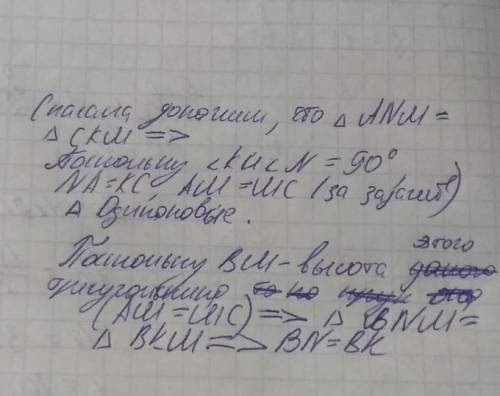 Спачала докажим, что △ ANM =
△ CKM =>
Поскольку <K и <N = 90°
NA = KC, AM = MC (за задачей)
△ Одинаковые.
этого
Поскольку BM - высота
треугольника
(AM = MC) => △ BNM =
△ BKM => BN = BK